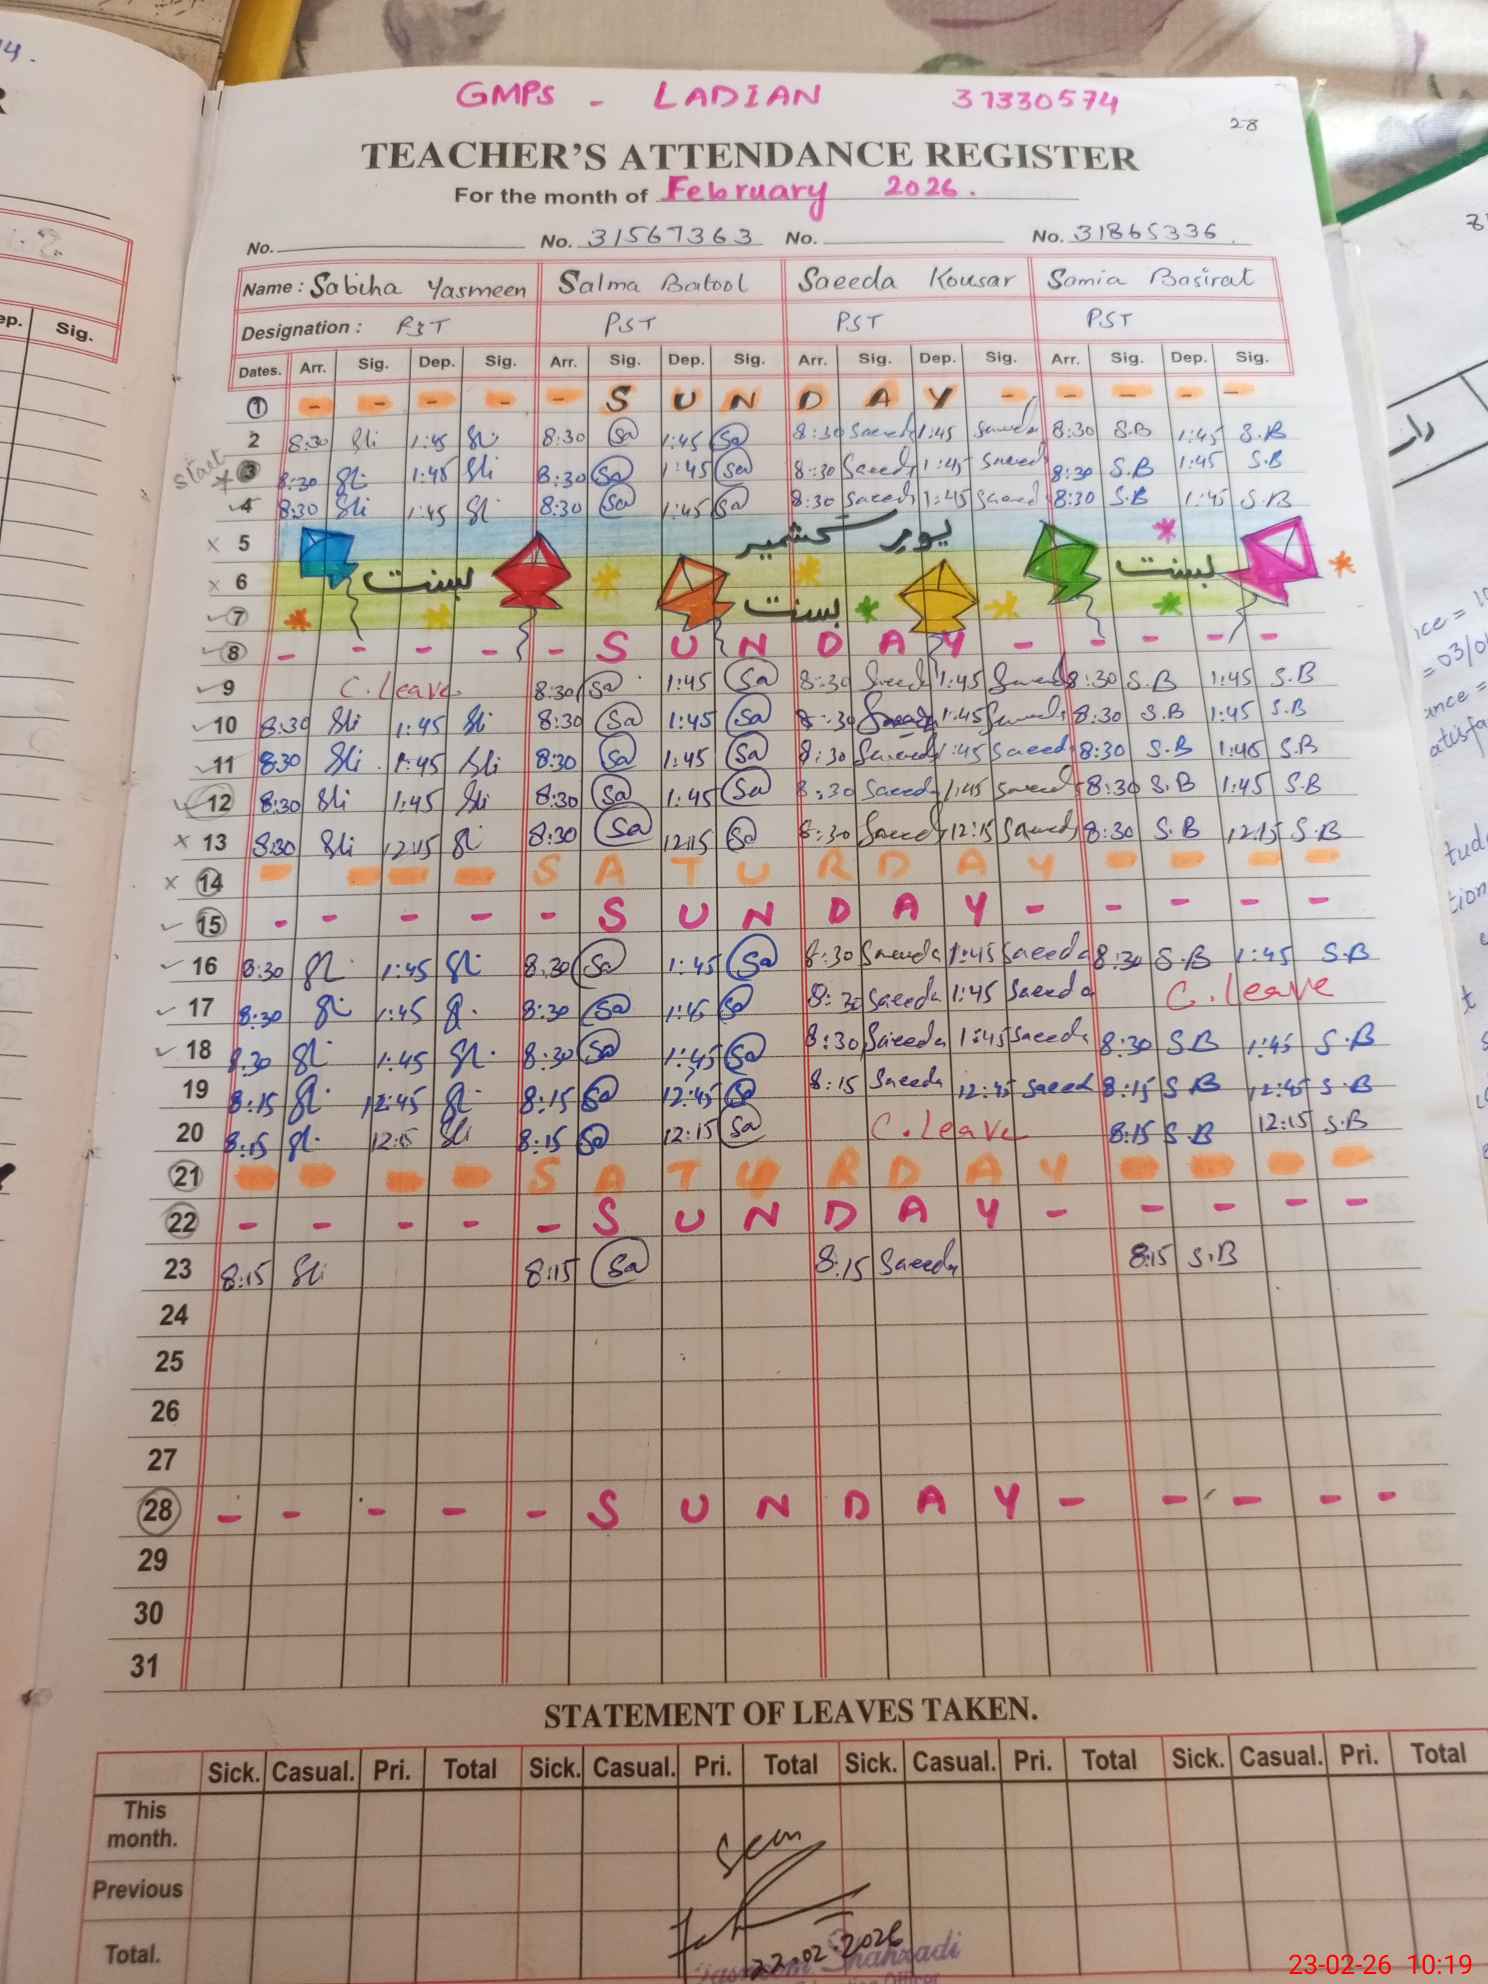 GMPS - LADIAN 37330574
28
TEACHER'S ATTENDANCE REGISTER
For the month of February 2026.
No. No. 31567363 No. No. 31865336
Name: Sabiha Yasmeen Salma Batool Saeeda Kousar Samia Basirat
Designation: PST PST PST
Dates. Arr. Sig. Dep. Sig. Arr. Sig. Dep. Sig. Arr. Sig. Dep. Sig. Arr. Sig. Dep. Sig.
1 - - - - - S U N D A Y - - - - -
2 8:30 Sli 1:45 Sli 8:30 Sa 1:45 Sa 8:30 Saeeda 1:45 Saeeda 8:30 S.B 1:45 S.B
start
3 8:30 Sli 1:45 Sli 8:30 Sa 1:45 Sa 8:30 Saeeda 1:45 Saeeda 8:30 S.B 1:45 S.B
4 8:30 Sli 1:45 Sli 8:30 Sa 1:45 Sa 8:30 Saeeda 1:45 Saeeda 8:30 S.B 1:45 S.B
x 5 یومِ کشمیر
x 6 بسنت بسنت
7 بسنت
8 - - - - - S U N D A Y - - - - -
9 C.leave 8:30 Sa 1:45 Sa 8:30 Saeeda 1:45 Saeeda 8:30 S.B 1:45 S.B
10 8:30 Sli 1:45 Sli 8:30 Sa 1:45 Sa 8:30 Saeeda 1:45 Saeeda 8:30 S.B 1:45 S.B
11 8:30 Sli 1:45 Sli 8:30 Sa 1:45 Sa 8:30 Saeeda 1:45 Saeeda 8:30 S.B 1:45 S.B
12 8:30 Sli 1:45 Sli 8:30 Sa 1:45 Sa 8:30 Saeeda 1:45 Saeeda 8:30 S.B 1:45 S.B
x 13 8:30 Sli 12:15 Sli 8:30 Sa 12:15 Sa 8:30 Saeeda 12:15 Saeeda 8:30 S.B 12:15 S.B
x 14 - - - - S A T U R D A Y - - - -
15 - - - - - S U N D A Y - - - - -
16 8:30 Sli 1:45 Sli 8:30 Sa 1:45 Sa 8:30 Saeeda 1:45 Saeeda 8:30 S.B 1:45 S.B
17 8:30 Sli 1:45 8:30 Sa 1:45 Sa 8:30 Saeeda 1:45 Saeeda C.leave
18 8:30 Sli 1:45 Sli 8:30 Sa 1:45 Sa 8:30 Saeeda 1:45 Saeeda 8:30 S.B 1:45 S.B
19 8:15 Sli 12:45 Sli 8:15 Sa 12:45 Sa 8:15 Saeeda 12:45 Saeed 8:15 S.B 12:45 S.B
20 8:15 Sli 12:15 Sli 8:15 Sa 12:15 Sa C.leave 8:15 S.B 12:15 S.B
21 - - - - S A T U R D A Y - - - -
22 - - - - - S U N D A Y - - - - -
23 8:15 Sli 8:15 Sa 8:15 Saeeda 8:15 S.B
24
25
26
27
28 - - - - - S U N D A Y - - - - -
29
30
31
STATEMENT OF LEAVES TAKEN.
Sick. Casual. Pri. Total Sick. Casual. Pri. Total Sick. Casual. Pri. Total Sick. Casual. Pri. Total
This month.
Previous
Total.
Seen
Shahzadi
Sig.
23-02-26 10:19